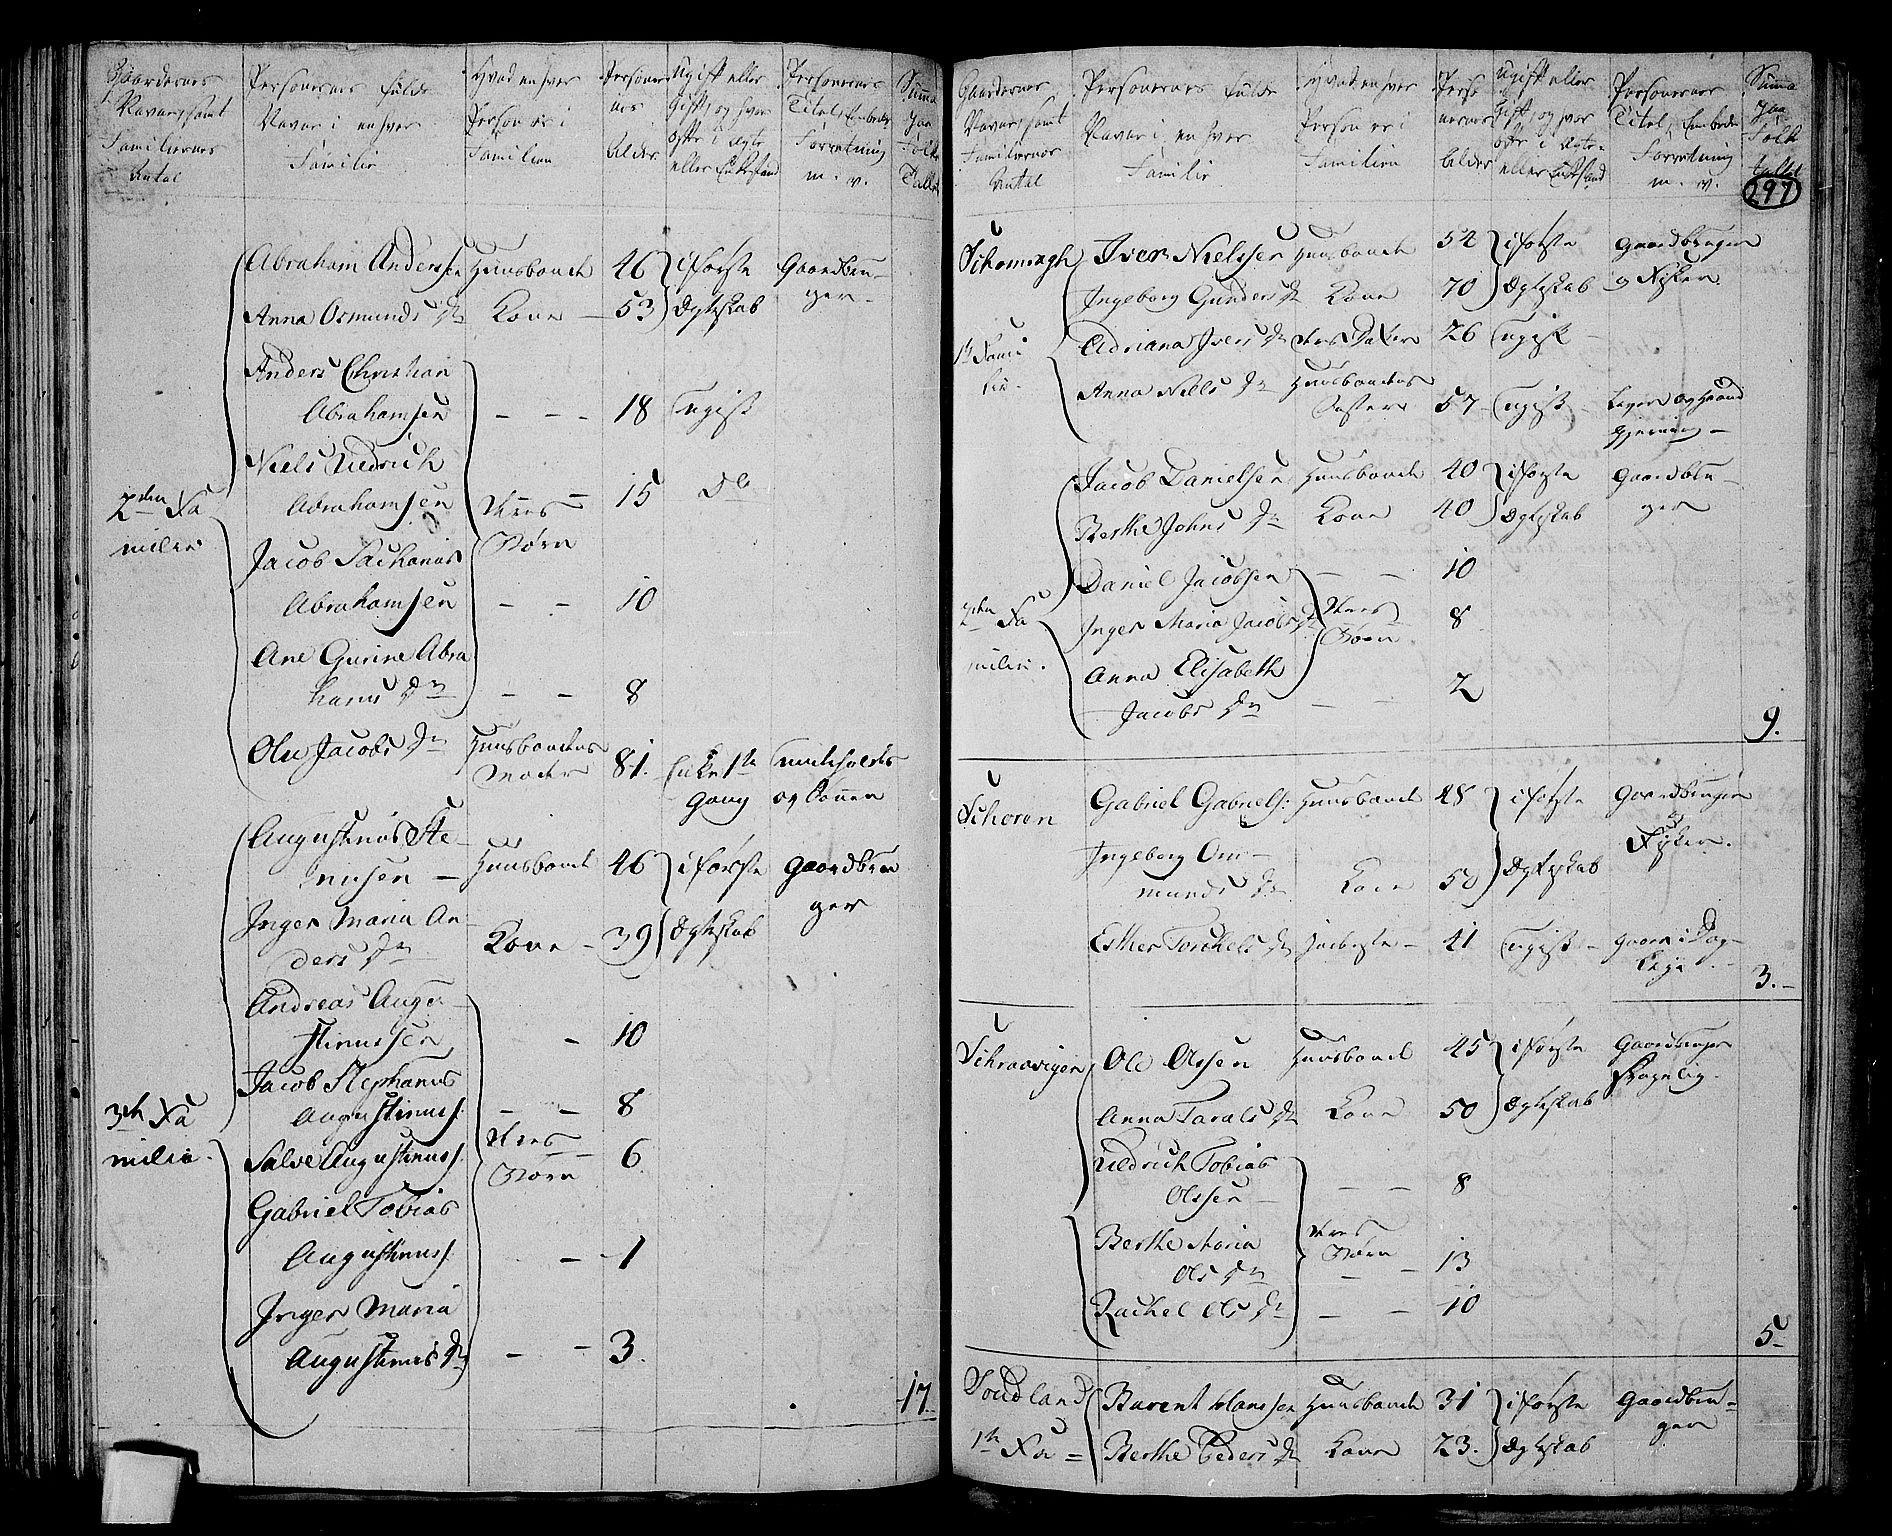 Gaardernes
Navne, samt
Familiernes
Antal
Personernes fulde
Navne i enhver
Familie
Hvad enhver
Person er i
Familien
Personer-
nes
Alder
Ugift eller
Gift, og hvor
ofte i Ægte
eller Enkestand
Personernes
Titel, Embede
Forretning
m. v.
Summa
paa
Folke
Tallet
2den Fa
milie
Abraham Andersen Huusbonde 46 i første Gaardbru-
Anna Osmunds Dr Kone 53 Ægteskab ger
Anders Christian
Abrahamsen — — 18 Ugift
Niels Uldrich
Abrahamsen Deres 15 Do
Børn
Jacob Zacharias
Abrahamsen — — 10
Ane Gurine Abra
hams Dr — — 8
Olu Jacobs Dr Huusbondens 81. Enke 1ste
Moder Gang
3die Fa
milie.
Augustinus Ste-
nusen — Huusbonde 46 i første Gaardbru
Inger Maria An- ger
ders Dr Kone — 39 Ægteskab
Andreas Augu-
stinussen — 10
Jacob Stephanus
Augustinuss: — — 8
Salve Augustinuss. Deres 6.
Børn
Gabriel Tobias
Augustinuss. — — 1
Inger Maria
Augustinus Dr — — 3.
17.
Gaardernes
Navne, samt
Familiernes
Antal
Personernes fulde
Navne i enhver
Familie
Hvad enhver
Person er i
Familien
Perso
nernes
Alder
Ugift eller
Gift, og hvor
ofte i Ægte-
eller Enkestand
Personernes
Titel, Embede
Forretning
m. v.
Summa
paa
Folke
tallet
297
1ste Fami
lie.
Iver Nielssen Huusbonde 54 i første Gaardbruger
Ingeborg Gunders Dr Kone 70 Ægteskab og Fisker.
Adriana Ivers Dr Deres Datter 26 Ugift —
Anna Niels Dr Huusbondens
Søster 57 — Ugift — Lever af Haand
gjerning —
2den Fa
milie.
Jacob Danielsen Huusbonde 40 i første Gaardbru-
Berthe Johns Dr Kone 40 Ægteskab ger
Daniel Jacobsen — — 10
Inger Maria Jacobs Dr Deres 8
Børn
Anna Elisabeth
Jacobs Dr — — 2
9.
Schoren Gabriel Gabriels: Huusbonde 48 i første Gaardbruger
og
Ingeborg Os- Fisker.
munds Dr Kone 50 Ægteskab
Esther Torkels Dr Inderste — 41 Ugift — gaaer i Dag-
leje. 3. —
Schraavigen Ole Olssen Huusbonde 45 i første Gaardbruger
Anna Tarals Dr Kone 50 Ægteskab
Uldrich Tobias
Olssen — — — 8
Berthe Maria Deres
Børn
Ols Dr — — 13
Rachel Ols Dr — — 10
5
Soudland Barent Hanssen Huusbonde 31 i første Gaardbru-
1ste Fa = Berthe Peders Dr Kone 23. Ægteskab ger